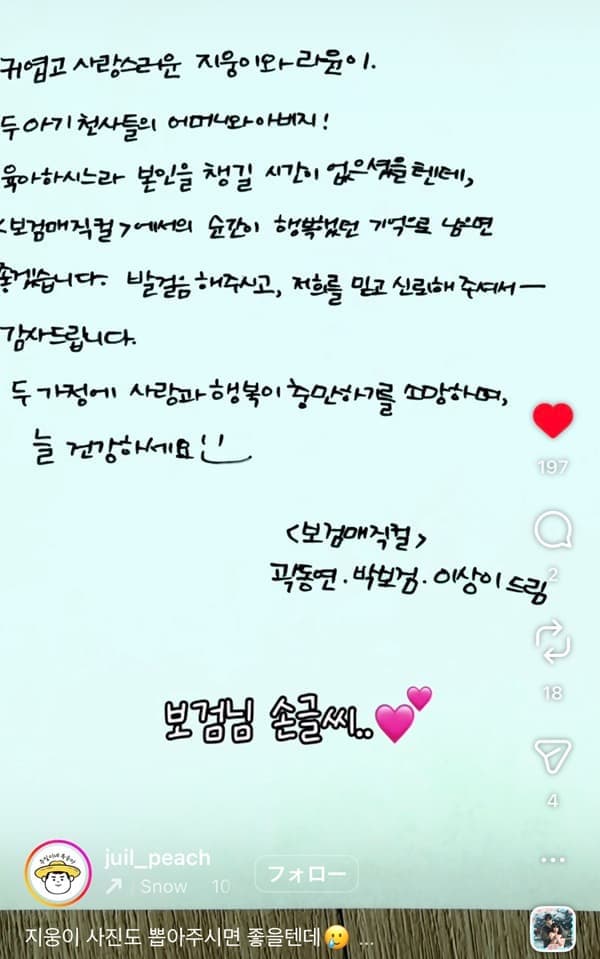 귀엽고 사랑스러운 지웅이와 라윤이.
두 아기 천사들의 어머니와 아버지!
육아하시느라 본인을 챙길 시간이 없으셨을텐데,
<보검매직컬>에서의 순간이 행복했던 기억으로 남으면
좋겠습니다. 발걸음 해주시고, 저희를 믿고 신뢰해 주셔서 —
감사드립니다.
두 가정에 사랑과 행복이 충만하기를 소망하며,
늘 건강하세요
<보검매직컬>
곽동연. 박보검. 이상이 드림
보검님 손글씨..💕
197
2
18
4
juil_peach
フォロー
Snow 10
지웅이 사진도 뽑아주시면 좋을텐데🥲 ...